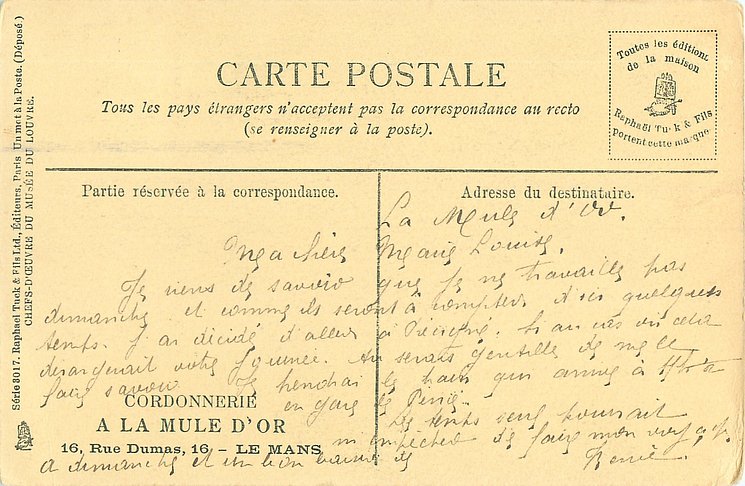 CARTE POSTALE
Tous les pays étrangers n'acceptent pas la correspondance au recto
(se renseigner à la poste).
Toutes les éditions
de la maison
Raphaël Tuck & Fils
Portent cette marque
Série 3017. Raphael Tuck & Fils Ltd., Éditeurs, Paris Un met à la Poste. (Déposé.)
CHEFS-D'ŒUVRE DU MUSÉE DU LOUVRE.
Partie réservée à la correspondance.
Adresse du destinataire.
La Mule d'Or.
Ma chère Marie Louise,
Je viens de savoir que je ne travaille pas
dimanche et comme ils seront à compter d'ici quelques
temps. J'ai décidé d'aller à Précigné. Si au cas où cela
dérangerait votre journée. Tu serais gentille de me le
faire savoir. Je prendrai le train qui arrive à
en gare de
Le temps seul pourrait
m'empêcher de faire mon voyage.
A dimanche et un bon baiser de Renée.
CORDONNERIE
A LA MULE D'OR
16, Rue Dumas, 16 – LE MANS